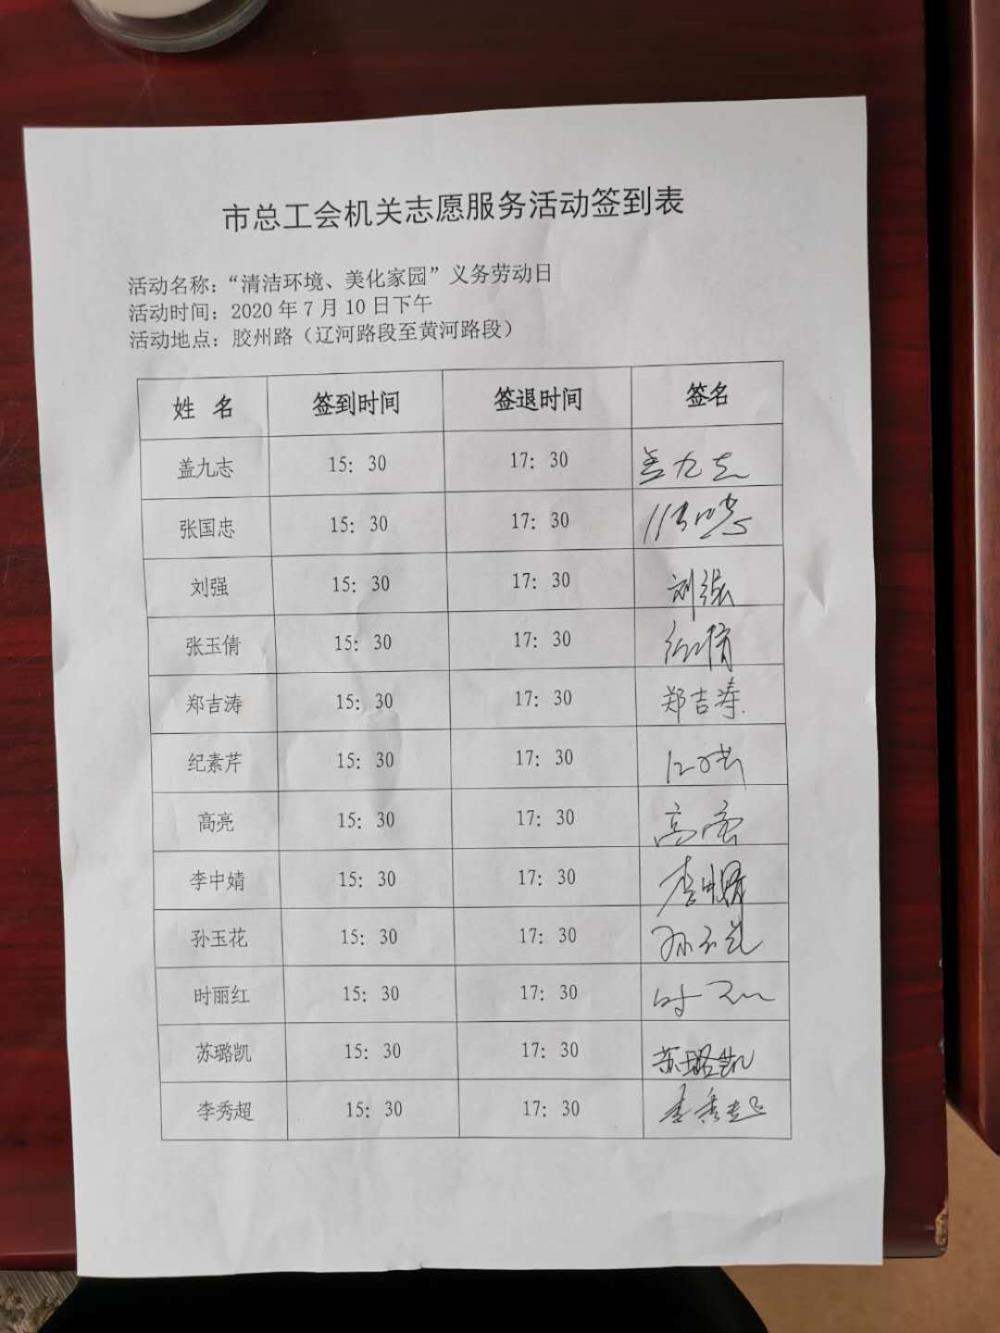 市总工会机关志愿服务活动签到表
活动名称：“清洁环境、美化家园”义务劳动日
活动时间：2020年7月10日下午
活动地点：胶州路（辽河路段至黄河路段）
姓 名 签到时间 签退时间 签名
盖九志 15：30 17：30 盖九志
张国忠 15：30 17：30
刘强 15：30 17：30 刘强
张玉倩 15：30 17：30
郑吉涛 15：30 17：30 郑吉涛
纪素芹 15：30 17：30
高亮 15：30 17：30 高亮
李中婧 15：30 17：30 李中婧
孙玉花 15：30 17：30 孙玉花
时丽红 15：30 17：30
苏璐凯 15：30 17：30 苏璐凯
李秀超 15：30 17：30 李秀超